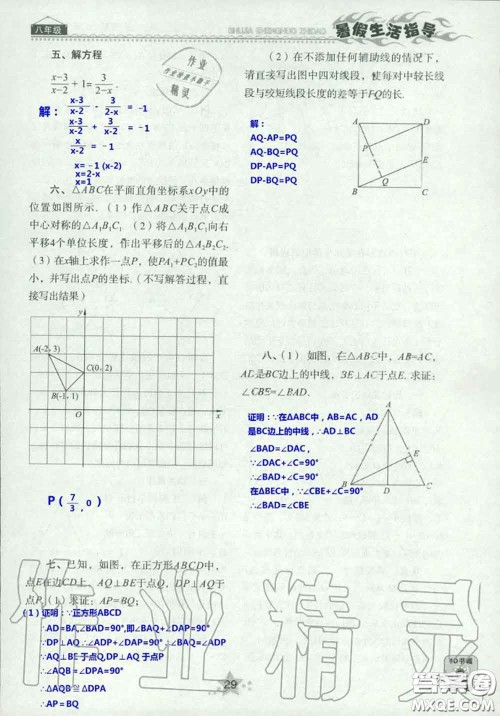 八年级
暑假生活指导
五、解方程
x-3/x-2 + 1 = 3/2-x.
解： x-3/x-2 - 3/2-x = -1
x-3/x-2 + 3/x-2 = -1
x/x-2 = -1
x= -1 (x-2)
x=2-x
x=1
作业
精灵
六、△ABC在平面直角坐标系xOy中的
位置如图所示.（1）作△ABC关于点C成
中心对称的△A₁B₁C₁（2）将△A₁B₁C₁向右
平移4个单位长度，作出平移后的△A₂B₂C₂.
（3）在x轴上求作一点P，使PA₁+PC₂的值最
小，并写出点P的坐标.（不写解答过程，直
接写出结果）
y
A(-2，3)
C(0，2)
B(-1，1)
O
x
P ( 7/3 , 0 )
七、已知，如图，在正方形ABCD中，
点E在边CD上，AQ⊥BE于点Q，DP⊥AQ于
点P.（1）求证：AP=BQ；
(1) 证明：∵正方形ABCD
∴AD=BA,∠BAD=90°,即∠BAQ+∠DAP=90°
∵DP⊥AQ ∴∠ADP+∠DAP=90° ∴∠BAQ=∠ADP
∵AQ⊥BE于点Q,DP⊥AQ 于点P
∴∠AQB =∠DPA=90°
∴△AQB≌△DPA
∴AP=BQ
（2）在不添加任何辅助线的情况下，
请直接写出图中四对线段，使每对中较长线
段与较短线段长度的差等于PQ的长.
解：
AQ-AP=PQ
AQ-BQ=PQ
DP-AP=PQ
DP-BQ=PQ
A
D
P
E
Q
B
C
八、（1） 如图，在△ABC中，AB=AC，
AD是BC边上的中线，BE⊥AC于点E. 求证：
∠CBE=∠BAD.
证明：∵在ΔABC中，AB=AC，AD
是BC边上的中线，∴AD⊥BC
∠BAD=∠DAC，
∵∠DAC+∠C=90°
∴∠BAD+∠C=90°
在BEC中，∵∠CBE+∠C=90°
∴∠BAD=∠CBE
A
E
B
D
C
29
作业精灵